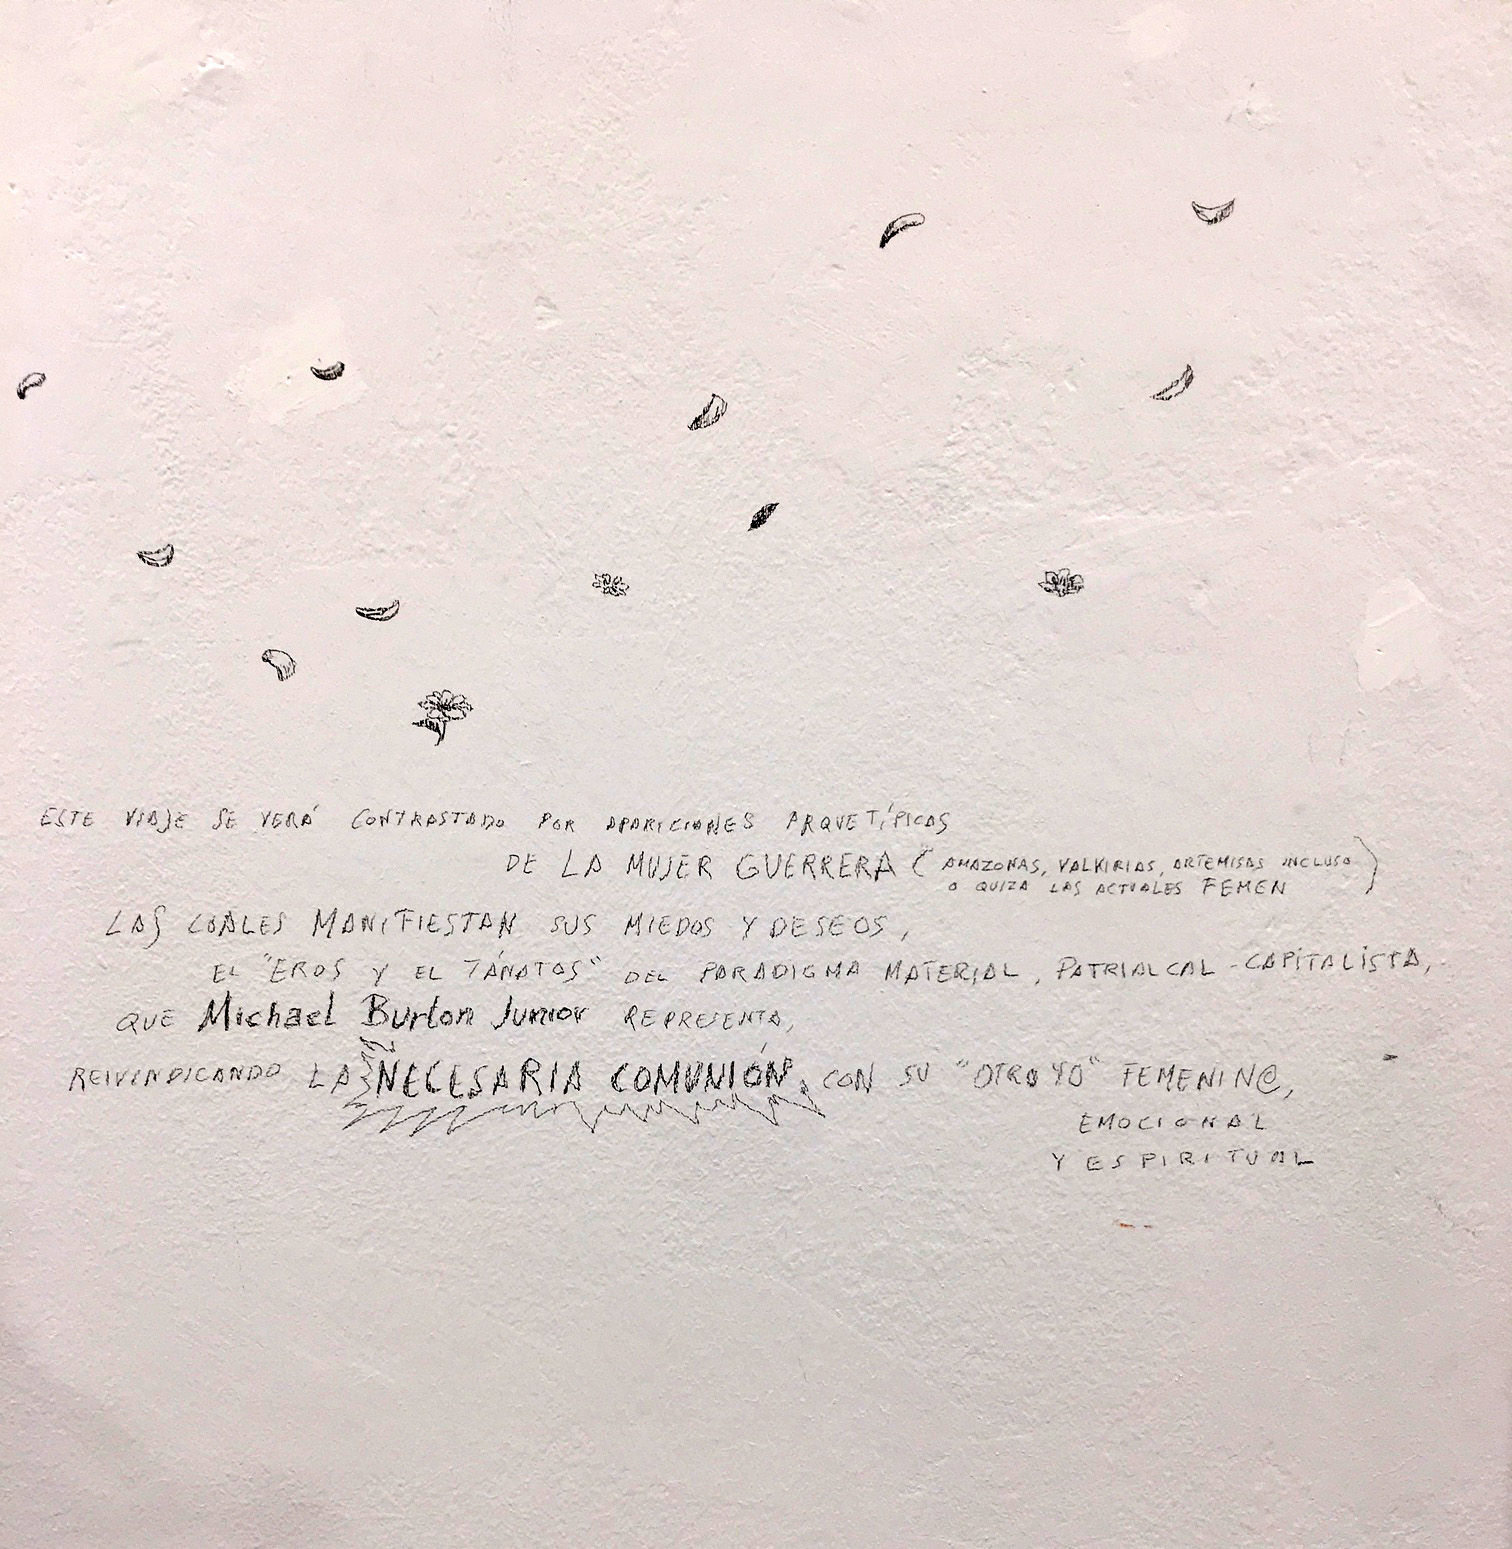 ESTE VIAJE SE VERÁ CONTRASTADO POR APARICIONES ARQUETÍPICAS
DE LA MUJER GUERRERA (AMAZONAS, VALKIRIAS, ARTEMISAS INCLUSO
O QUIZA LAS ACTUALES FEMEN)
LAS CUALES MANIFIESTAN SUS MIEDOS Y DESEOS,
EL "EROS Y EL TÁNATOS" DEL PARADIGMA MATERIAL, PATRIALCAL-CAPITALISTA,
QUE Michael Burton Junior REPRESENTA,
REIVINDICANDO LA NECESARIA COMUNIÓN, CON SU "OTRO YO" FEMENIN@,
EMOCIONAL
Y ESPIRITUAL